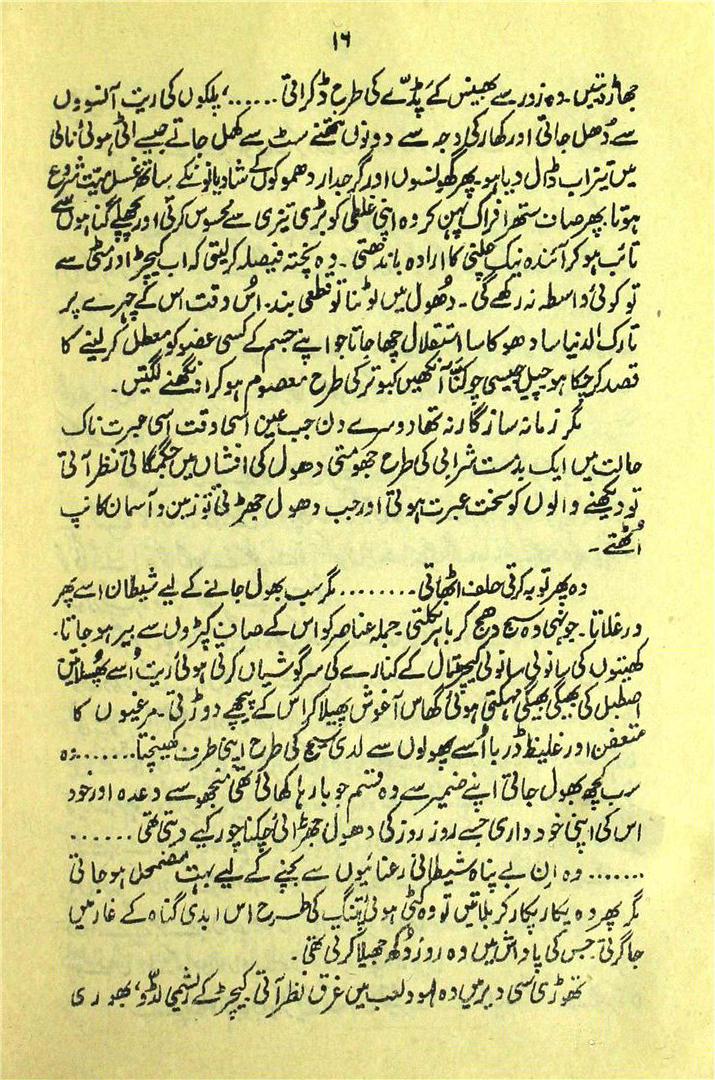 ۱۶
جھاڑ دیتیں۔ وہ زور سے بھینس کے پڈّے کی طرح ڈکراتی ......، پلکوں کی ریت آنسوؤں
سے دُھل جاتی اور کھار کی وجہ سے دونوں نتھنے سٹ سے کھل جاتے جیسے اٹی ہوئی نالی
میں تیزاب ڈال دیا ہو، پھر گھونسوں اور گرجدار دھموکوں کے شادیانو نکے ساتھ غسل میّت شروع
ہوتا۔ پھر صاف ستھرا فراک پہن کر وہ اپنی غلطی کو بڑی تیزی سے محسوس کرتی اور پچھلے گناہوں سے
تائب ہو کر آئندہ نیک چلنی کا ارادہ باندھتی۔ وہ پختہ فیصلہ کر لیتی کہ اب کیچڑ اور مٹی سے
تو کوئی واسطہ نہ رکھے گی۔ دھُول میں لوٹنا تو قطعی بند۔ اُس وقت اس کے چہرے پر
تارک الدنیا سادھو کا سا استقلال چھا جاتا جو اپنے جسم کے کسی عضو کو معطل کر لینے کا
قصد کر چکا ہو چیل جیسی چوکنّا آنکھیں کبوتر کی طرح معصوم ہو کر اونگھنے لگتیں۔
مگر زمانہ ساز گار نہ تھا دوسرے دن جب عین اسی وقت اسی عبرت ناک
حالت میں ایک بدمست شرابی کی طرح جھومتی دھول کی افشاں میں جگمگاتی نظر آتی
تو دیکھنے والوں کو سخت عبرت ہوتی اور جب دھول جھڑتی تو زمین و آسمان کانپ
اُٹھتے۔
وہ پھر توبہ کرتی حلف اٹھاتی ......... مگر سب بھول جانے کے لیے شیطان اسے پھر
ورغلاتا۔ جونہی وہ سج دھج کر باہر نکلتی۔ جملہ عناصر کو اس کے صاف کپڑوں سے بیر ہو جاتا۔
کھیتوں کی سانولی سانولی کیچڑ تال کے کنارے کی سرگوشیاں کرتی ہوئی ریت اُسے پھُسلاتیں
اصطبل کی بھیگی بھیگی مہکتی ہوئی گھاس آغوش پھیلا کر اس کے پیچھے دوڑتی۔ مرغیوں کا
متعفن اور غلیظ ڈربا اُسے پھولوں سے لدی سیج کی طرح اپنی طرف کھینچتا....... وہ
سب کچھ بھول جاتی اپنے ضمیر سے وہ قسم جو بارہا کھائی تھی منجھو سے وعدہ اور خود
اس کی اپنی خود داری جسے روز روز کی دھول جھڑائی چکنا چور کیے دیتی تھی ......
....... وہ ان بے پناہ شیطانی رعنائیوں سے بچنے کے لیے بہت مضمحل ہو جاتی
مگر پھر وہ پکار پکار کر بلاتیں تو وہ کٹی ہوئی پتنگ کی طرح اس ابدی گناہ کے غار میں
جا گرتی۔ جس کی پاداش میں وہ روز دُکھ جھیلا کرتی تھی۔
تھوڑی سی دیر میں وہ لہو و لعب میں غرق نظر آتی۔ کیچڑ کے ریشمی لڈّو، بھوری